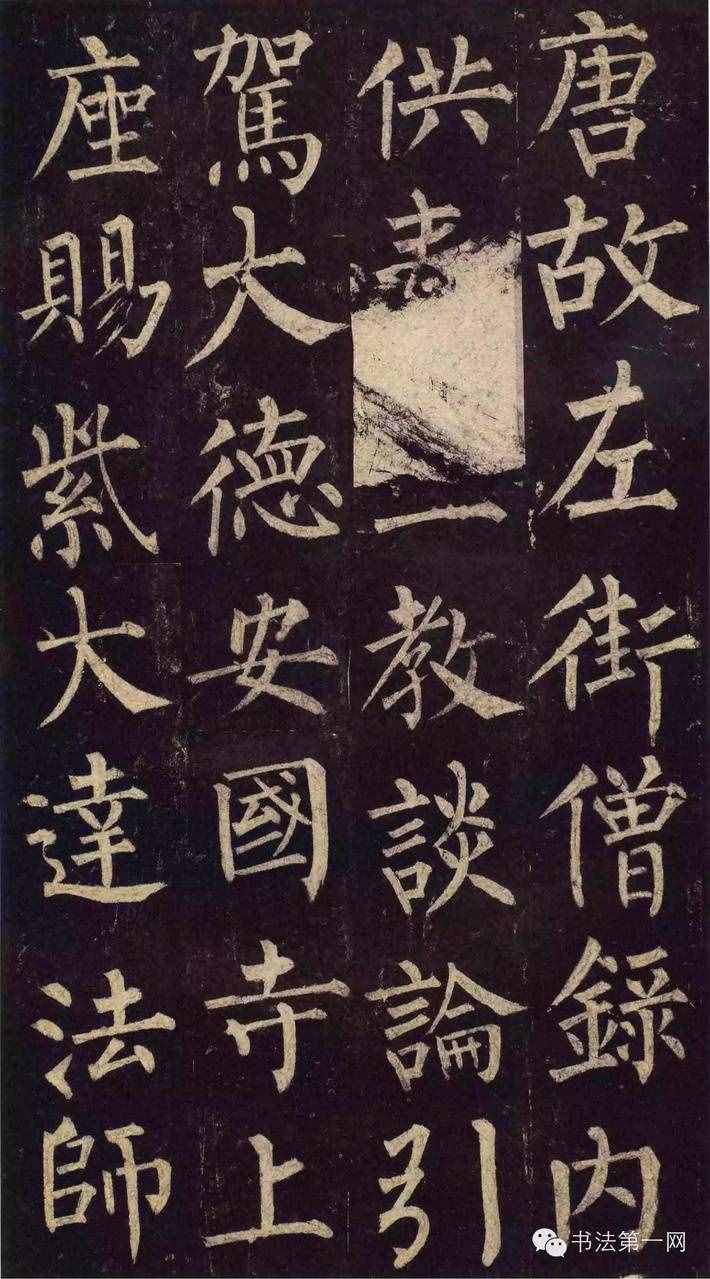 唐故左街僧錄内
供教談論引
駕大德安國寺上
座賜紫大達法師
书法第一网